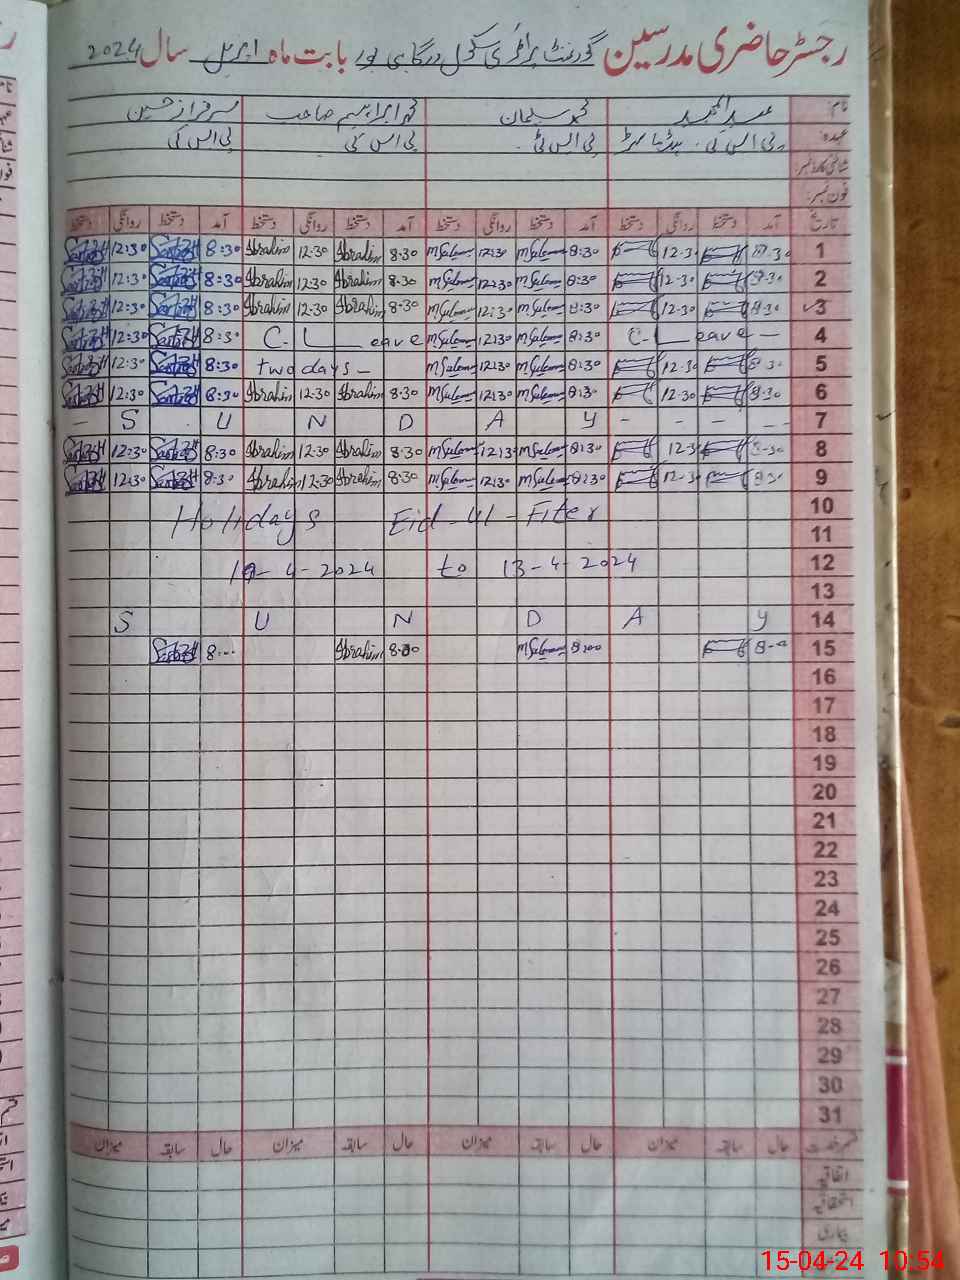 رجسٹر حاضری مدرسین گورنمنٹ پرائمری سکول درگاہی پور بابت ماہ اپریل سال 2024
نام: عبدالحمید محمد سلیمان محمد ابراہیم صاحب سرفراز حسین
عہدہ: پی ایس ٹی. ہیڈ ماسٹر پی ایس ٹی. پی ایس ٹی پی ایس ٹی
شناختی کارڈ نمبر:
فون نمبر:
تاریخ آمد دستخط روانگی دستخط آمد دستخط روانگی دستخط آمد دستخط روانگی دستخط آمد دستخط روانگی دستخط
1 8.30 12.30 8:30 M Suleman 12:30 M Suleman 8.30 Ibrahim 12.30 Ibrahim 8:30 12:30
2 8.30 12.30 8:30 M Suleman 12:30 M Suleman 8.30 Ibrahim 12.30 Ibrahim 8:30 12:30
3 8.30 12.30 8:30 M Suleman 12:30 M Suleman 8.30 Ibrahim 12.30 Ibrahim 8:30 12:30
4 C-Leave — 8:30 M Suleman 12:30 M Suleman C-Leave 8:30 12:30
5 8.30 12.30 8:30 M Suleman 12:30 M Suleman two days — 8:30 12:30
6 8.30 12.30 8:30 M Suleman 12:30 M Suleman 8.30 Ibrahim 12.30 Ibrahim 8:30 12:30
7 — S U N D A Y - - - - -
8 8.30 12.30 8:30 M Suleman 12:30 M Suleman 8.30 Ibrahim 12.30 Ibrahim 8:30 12:30
9 8.30 12.30 8:30 M Suleman 12:30 M Suleman 8.30 Ibrahim 12.30 Ibrahim 8:30 12:30
10 Holidays Eid-ul-Fiter
11
12 10-4-2024 to 13-4-2024
13
14 S U N D A Y
15 M Suleman 8:00 Ibrahim 8.00
16
17
18
19
20
21
22
23
24
25
26
27
28
29
30
31
قسم رخصت حال سابقہ میزان حال سابقہ میزان حال سابقہ میزان حال سابقہ میزان
اتفاقیہ
استحقاقیہ
بیماری
15-04-24 10:54